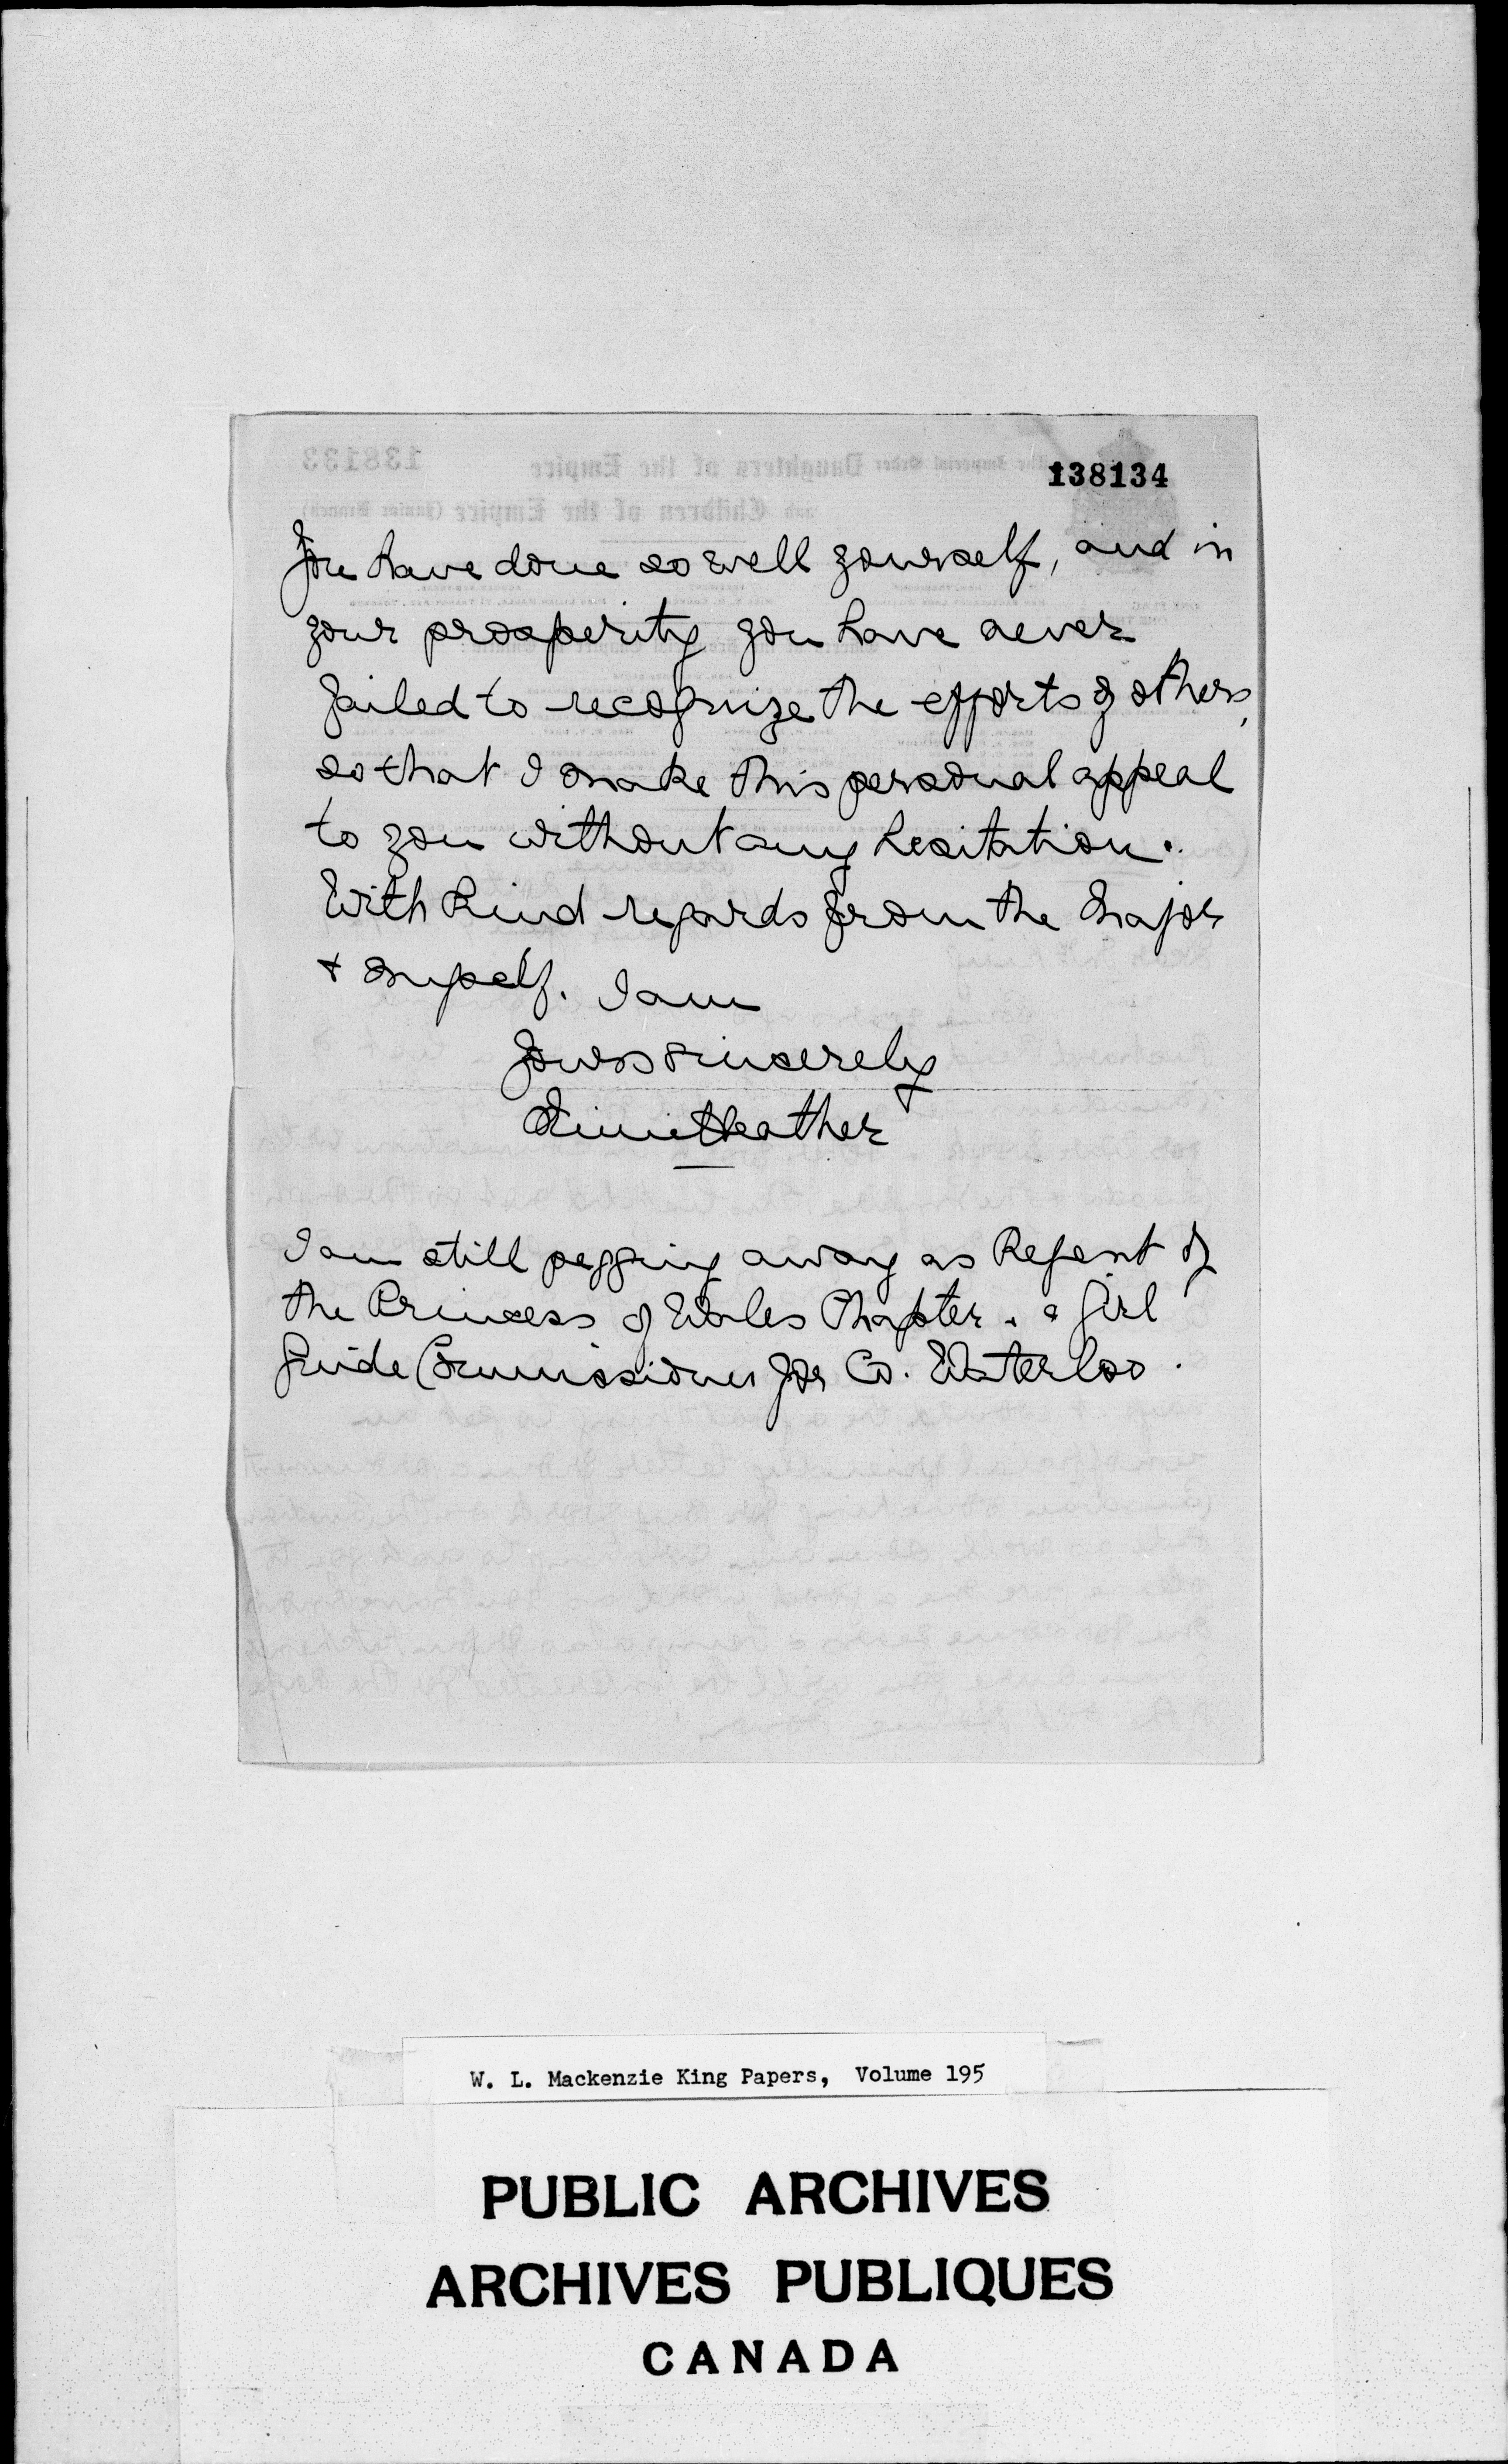 138134
You have done so well yourself, and in
your prosperity you have never
failed to recognize the efforts of others,
so that I make this personal appeal
to you without any hesitation.
With kind regards from the Major
+ myself. I am
Yours sincerely
Heather
I am still pegging away as Regent of
the Princess of Wales Chapter. & Girl
Guide Commissioner for Co. Waterloo.
W. L. Mackenzie King Papers, Volume 195
PUBLIC ARCHIVES
ARCHIVES PUBLIQUES
CANADA